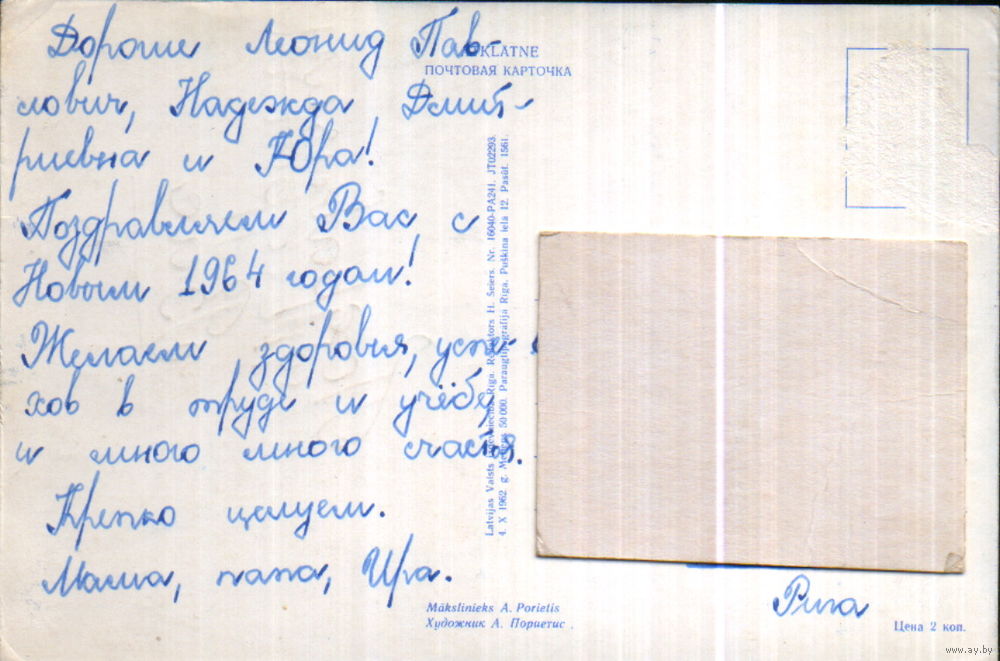 Дорогие Леонид Пав-
лович, Надежда Дмит-
риевна и Юра!
Поздравляем Вас с
Новым 1964 годом!
Желаем здоровья, успе-
хов в труде и учёбе,
и много много счастья.
Крепко целуем.
Мама, папа, Ира.
ATKLATNE
ПОЧТОВАЯ КАРТОЧКА
Latvijas Valsts izdevniecība Rīgā. Redaktors H. Seiers. Nr. 16040-PA241. JT02293.
4. X 1962 g. Metiens 50 000. Paraugtipogrāfija Rīgā, Puškina ielā 12. Pasūt. 1561.
Mākslinieks A. Porietis
Художник А. Пориетис.
Рига
Цена 2 коп.
www.ay.by